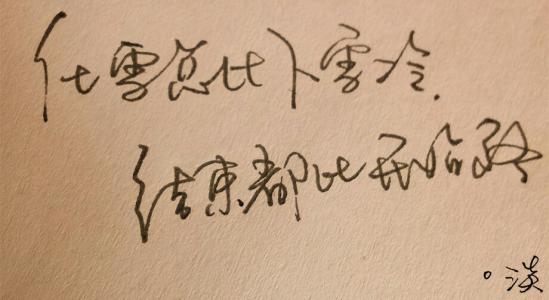 化雪总比下雪冷.
结束都比开始
。淡